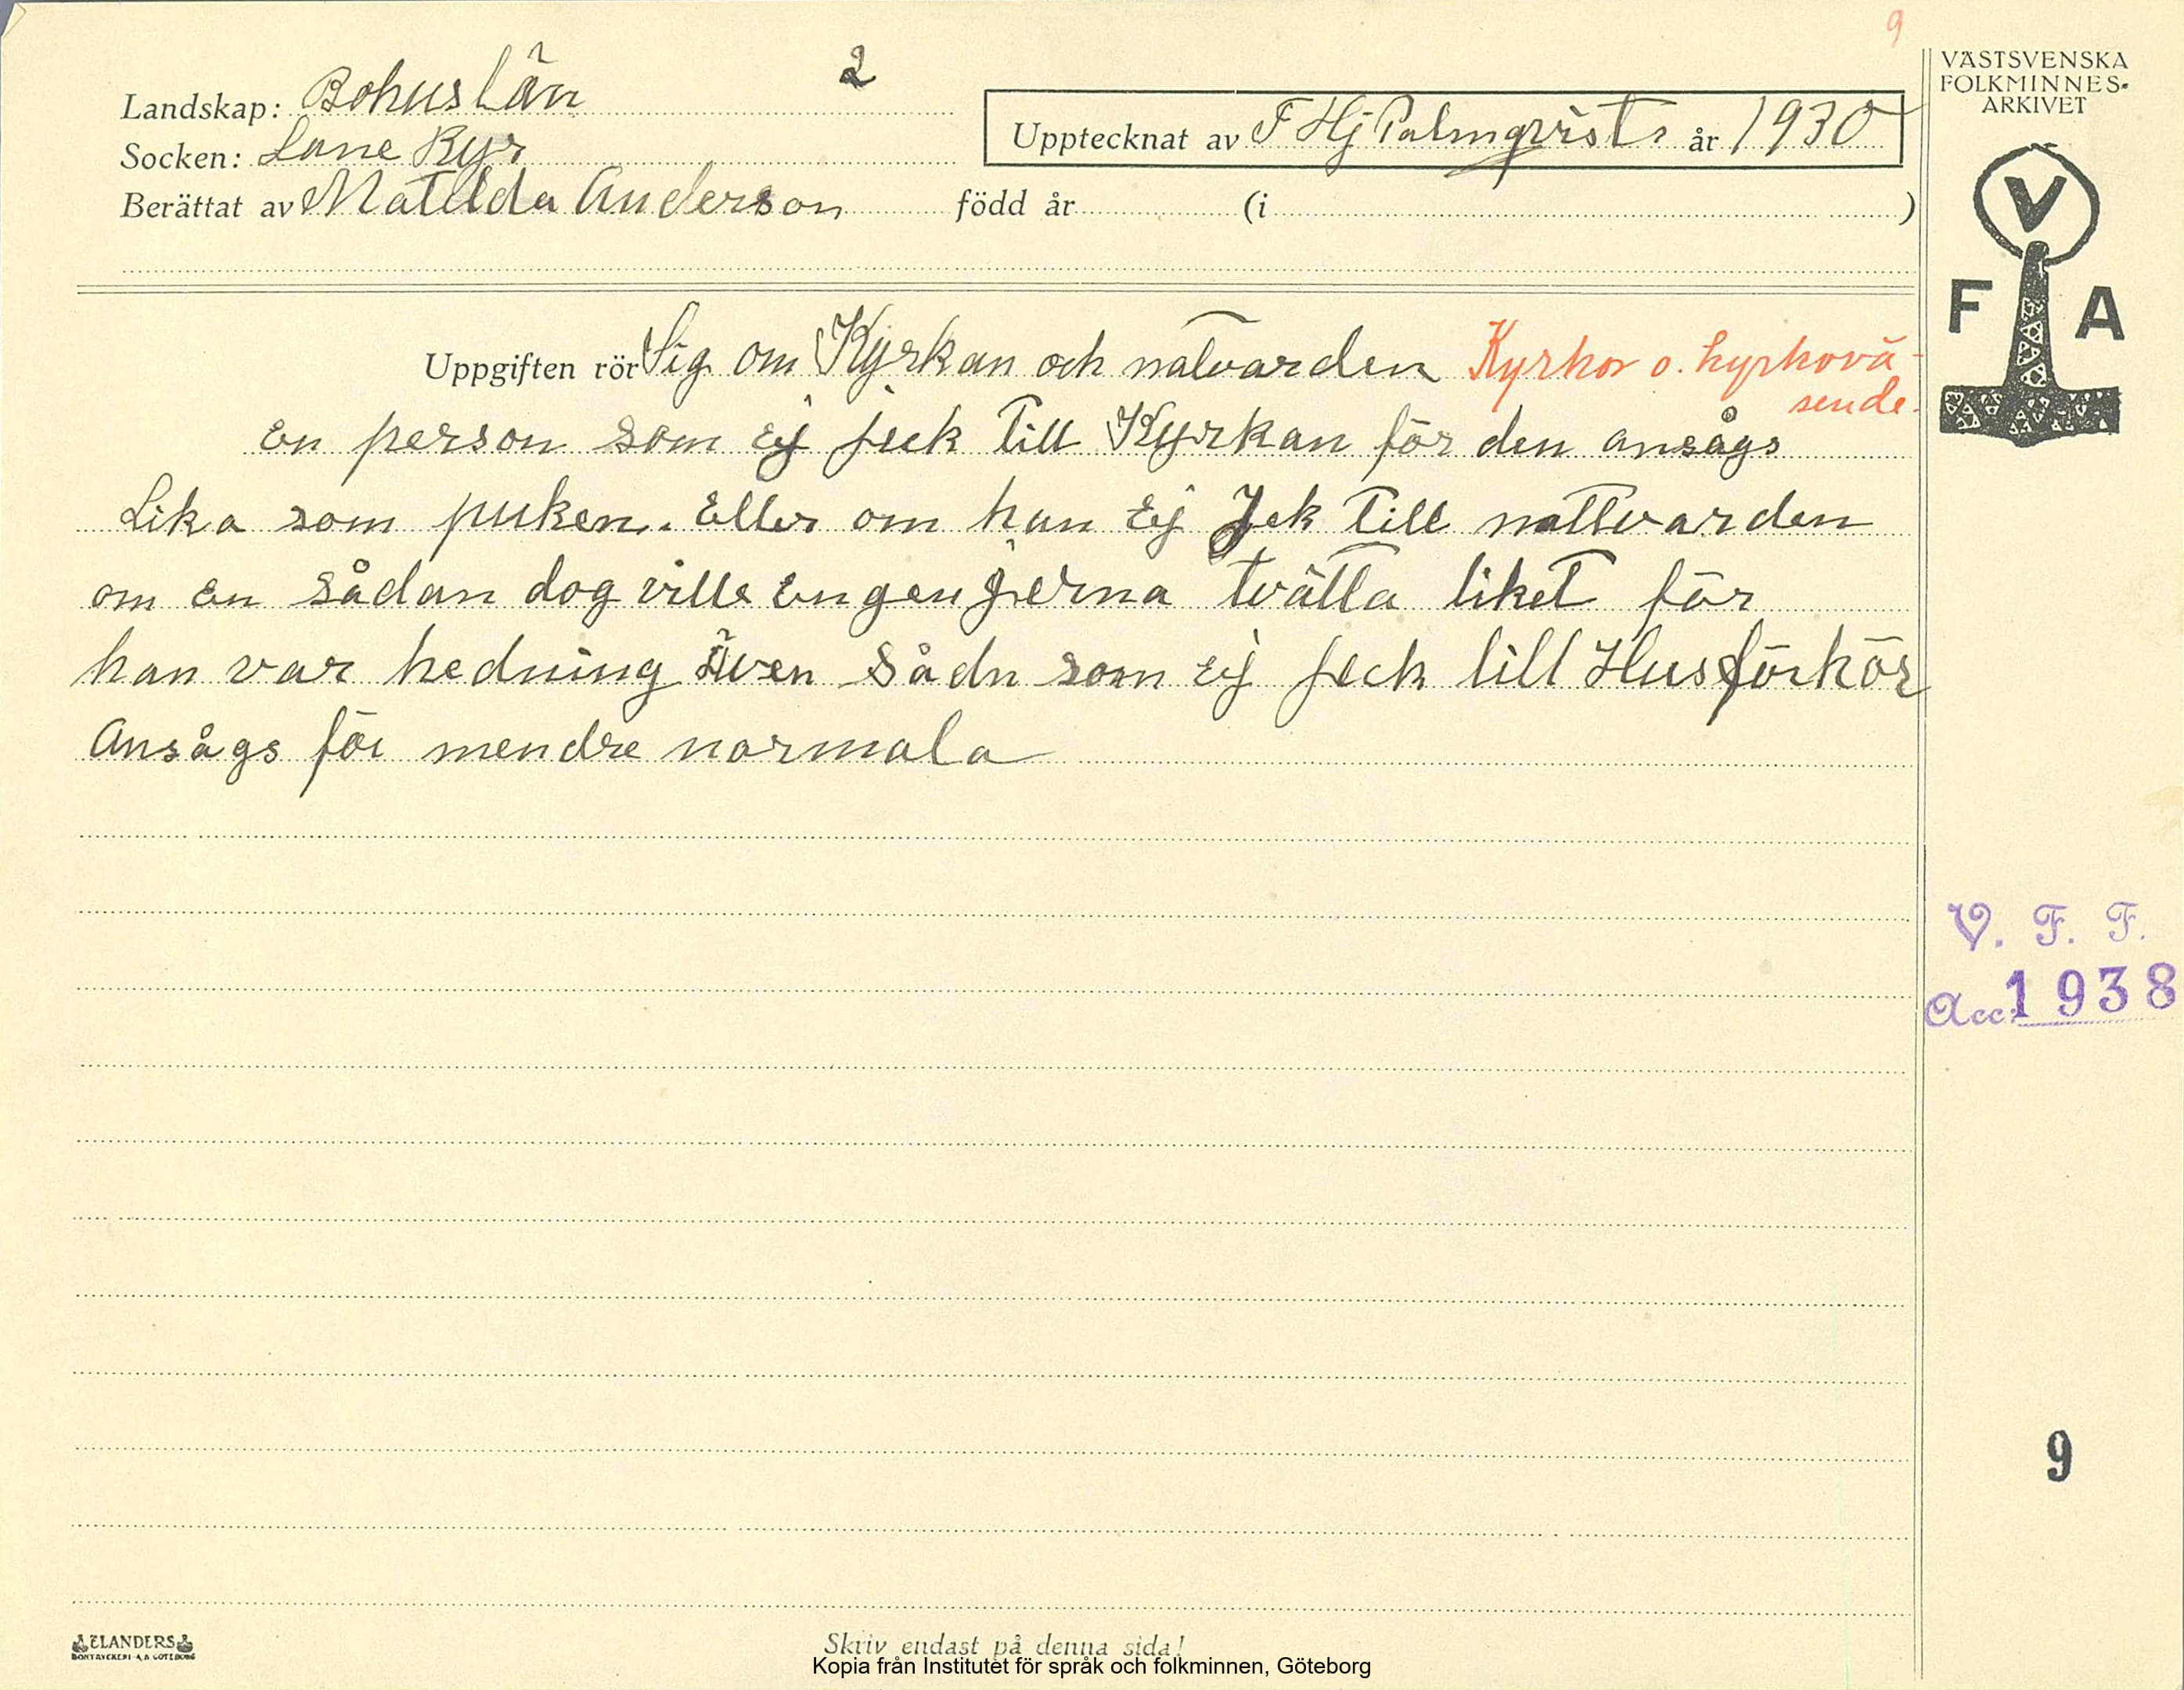 9
VÄSTSVENSKA
FOLKMINNES-
ARKIVET
2
Landskap: Bohuslän
Upptecknat av F Hj Palmqvist år 1930
Socken: Lane Ryr
Berättat av Matilda Anderson född år (i )
V
F A
Uppgiften rör Sig om Kyrkan och natvarden Kyrkor o. kyrkovä-
sende.
En person som Ej jeck Till Kyrkan för den ansågs
Lika som puken. Eller om han Ej Jek Till nattvarden
om En sådan dog ville Engen jerna tvätta liket för
han var hedning Även Sådn som Ej jeck till Husförhör
Ansågs för mendre normala
V. F. F.
Acc: 1938
9
ELANDERS
BOKTRYCKERI-A.B GÖTEBORG
Skriv endast på denna sida!
Kopia från Institutet för språk och folkminnen, Göteborg